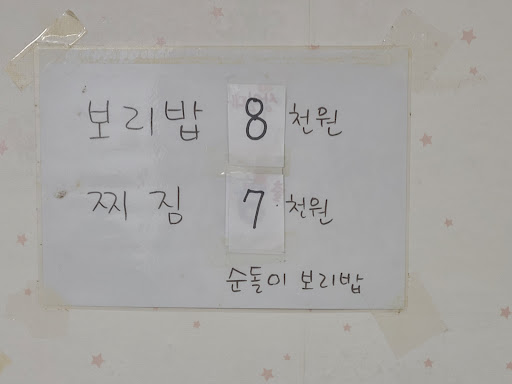 보리밥 8천원
찌짐 7천원
순돌이 보리밥